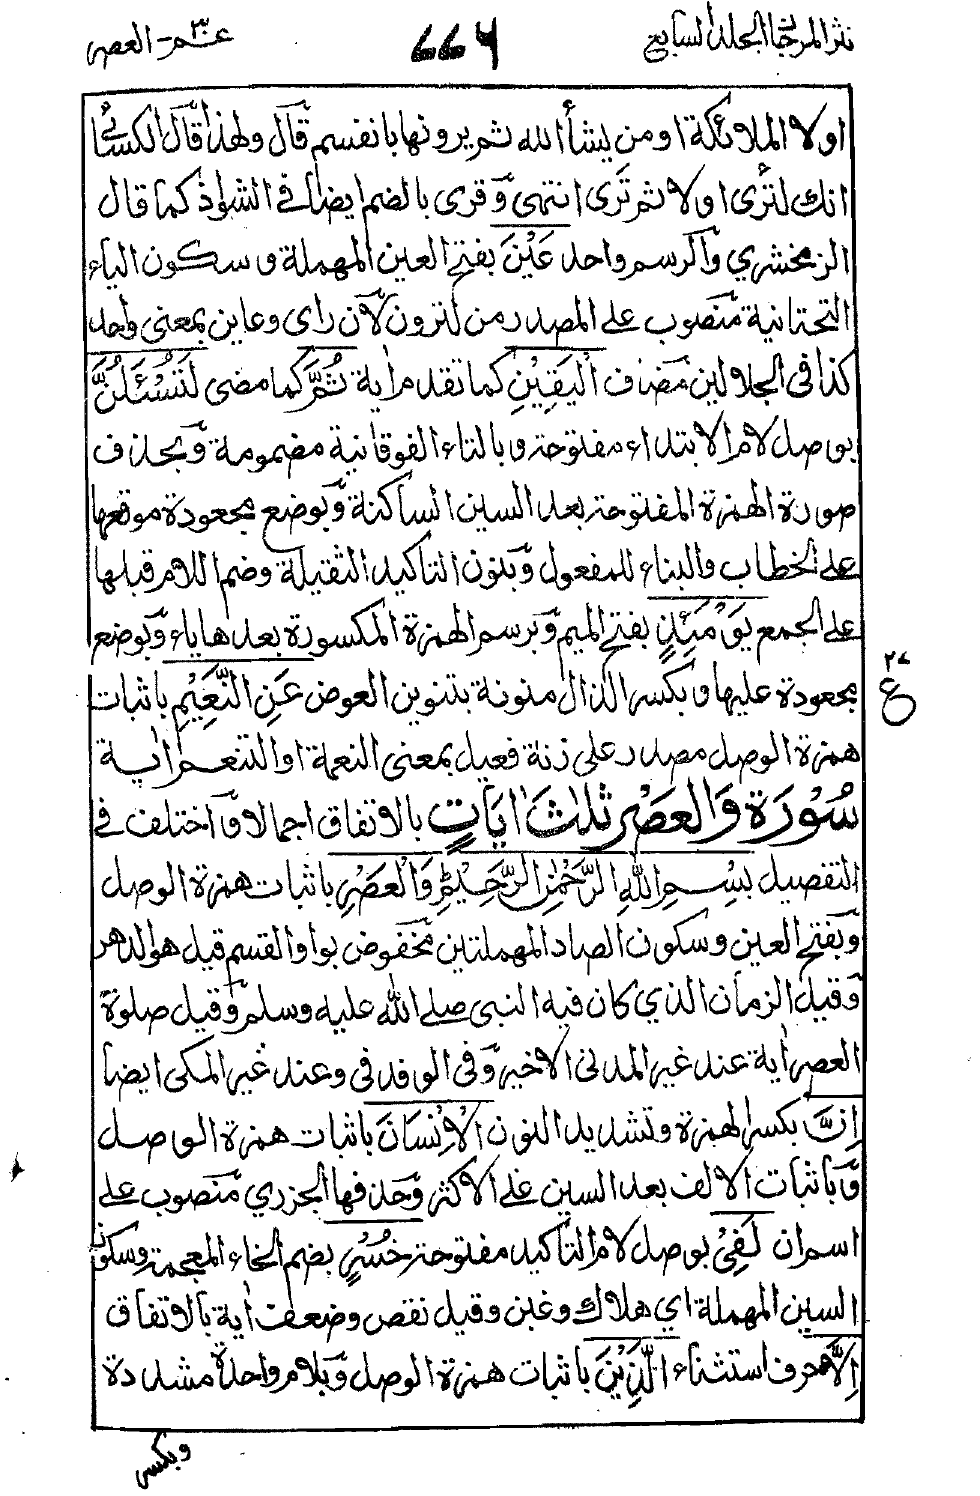 نثر المرجان الجلد السابع ٧٧٦ عم ٣٠ - العصر
اولا الملائكة او من يشأ الله ثم يرونها بانفسهم قال ولهذا قال الكسائي
انك لتُرى اولا ثم تَرى انتهى وقرى بالضم ايضا في الشواذ كما قال
الزمخشري والرسم واحد عَيْنَ بفتح العين المهملة وسكون الياء
التحتانية منصوب على المصدر من لترون لان راى وعاين بمعنى واحد
كذا فى الجلالين مضاف الْيَقِيْنِ كما تقدم اية ثُمَّ كما مضى لَتُسْـَٔلُنَّ
بوصل لام الابتداء مفتوحة وبالتاء الفوقانية مضمومة وبحذف
صورة الهمزة المفتوحة بعد السين الساكنة وبوضع مجعودة موقعها
على الخطاب والبناء للمفعول وبنون التاكيد الثقيلة وضم اللام قبلها
على الجمع يَوْمَئِذٍ بفتح الميم وبرسم الهمزة المكسورة بعدها ياء وبوضع
مجعودة عليها وبكسر الذال منونة بتنوين العوض عَنِ النَّعِيْمِ باثبات
همزة الوصل مصدر على زنة فعيل بمعنى النعمة او التنعم اية
سُوْرَة وَالعَصْرِ ثلٰثَ اٰيَاتٍ بالاتفاق اجمالا و اختلف في
التفصيل بِسْمِ اللّٰهِ الرَّحْمٰنِ الرَّحِيْمِ وَالْعَصْرِ باثبات همزة الوصل
وبفتح العين وسكون الصاد المهملتين مخفوض بواو القسم قيل هو الدهر
وقيل الزمان الذي كان فيه النبى صلى الله عليه وسلم وقيل صلوة
العصر اية عند غير المدنى الاخير وفى الوفد فى وعند غير المكى ايضا
اِنَّ بكسر الهمزة وتشديد النون الْاِنْسَانَ باثبات همزة الوصل
وباثبات الالف بعد السين على الاكثر وحذفها الجزري منصوب على
اسم ان لَفِىْ بوصل لام التاكيد مفتوحة خُسْرٍ بضم الخاء المعجمة وسكون
السين المهملة اي هلاك وغبن وقيل نقص وضعف اية بالاتفاق
اِلَّا حرف استثناء الَّذِيْنَ باثبات همزة الوصل وبلام واحدة مشددة
وبكسر
ع